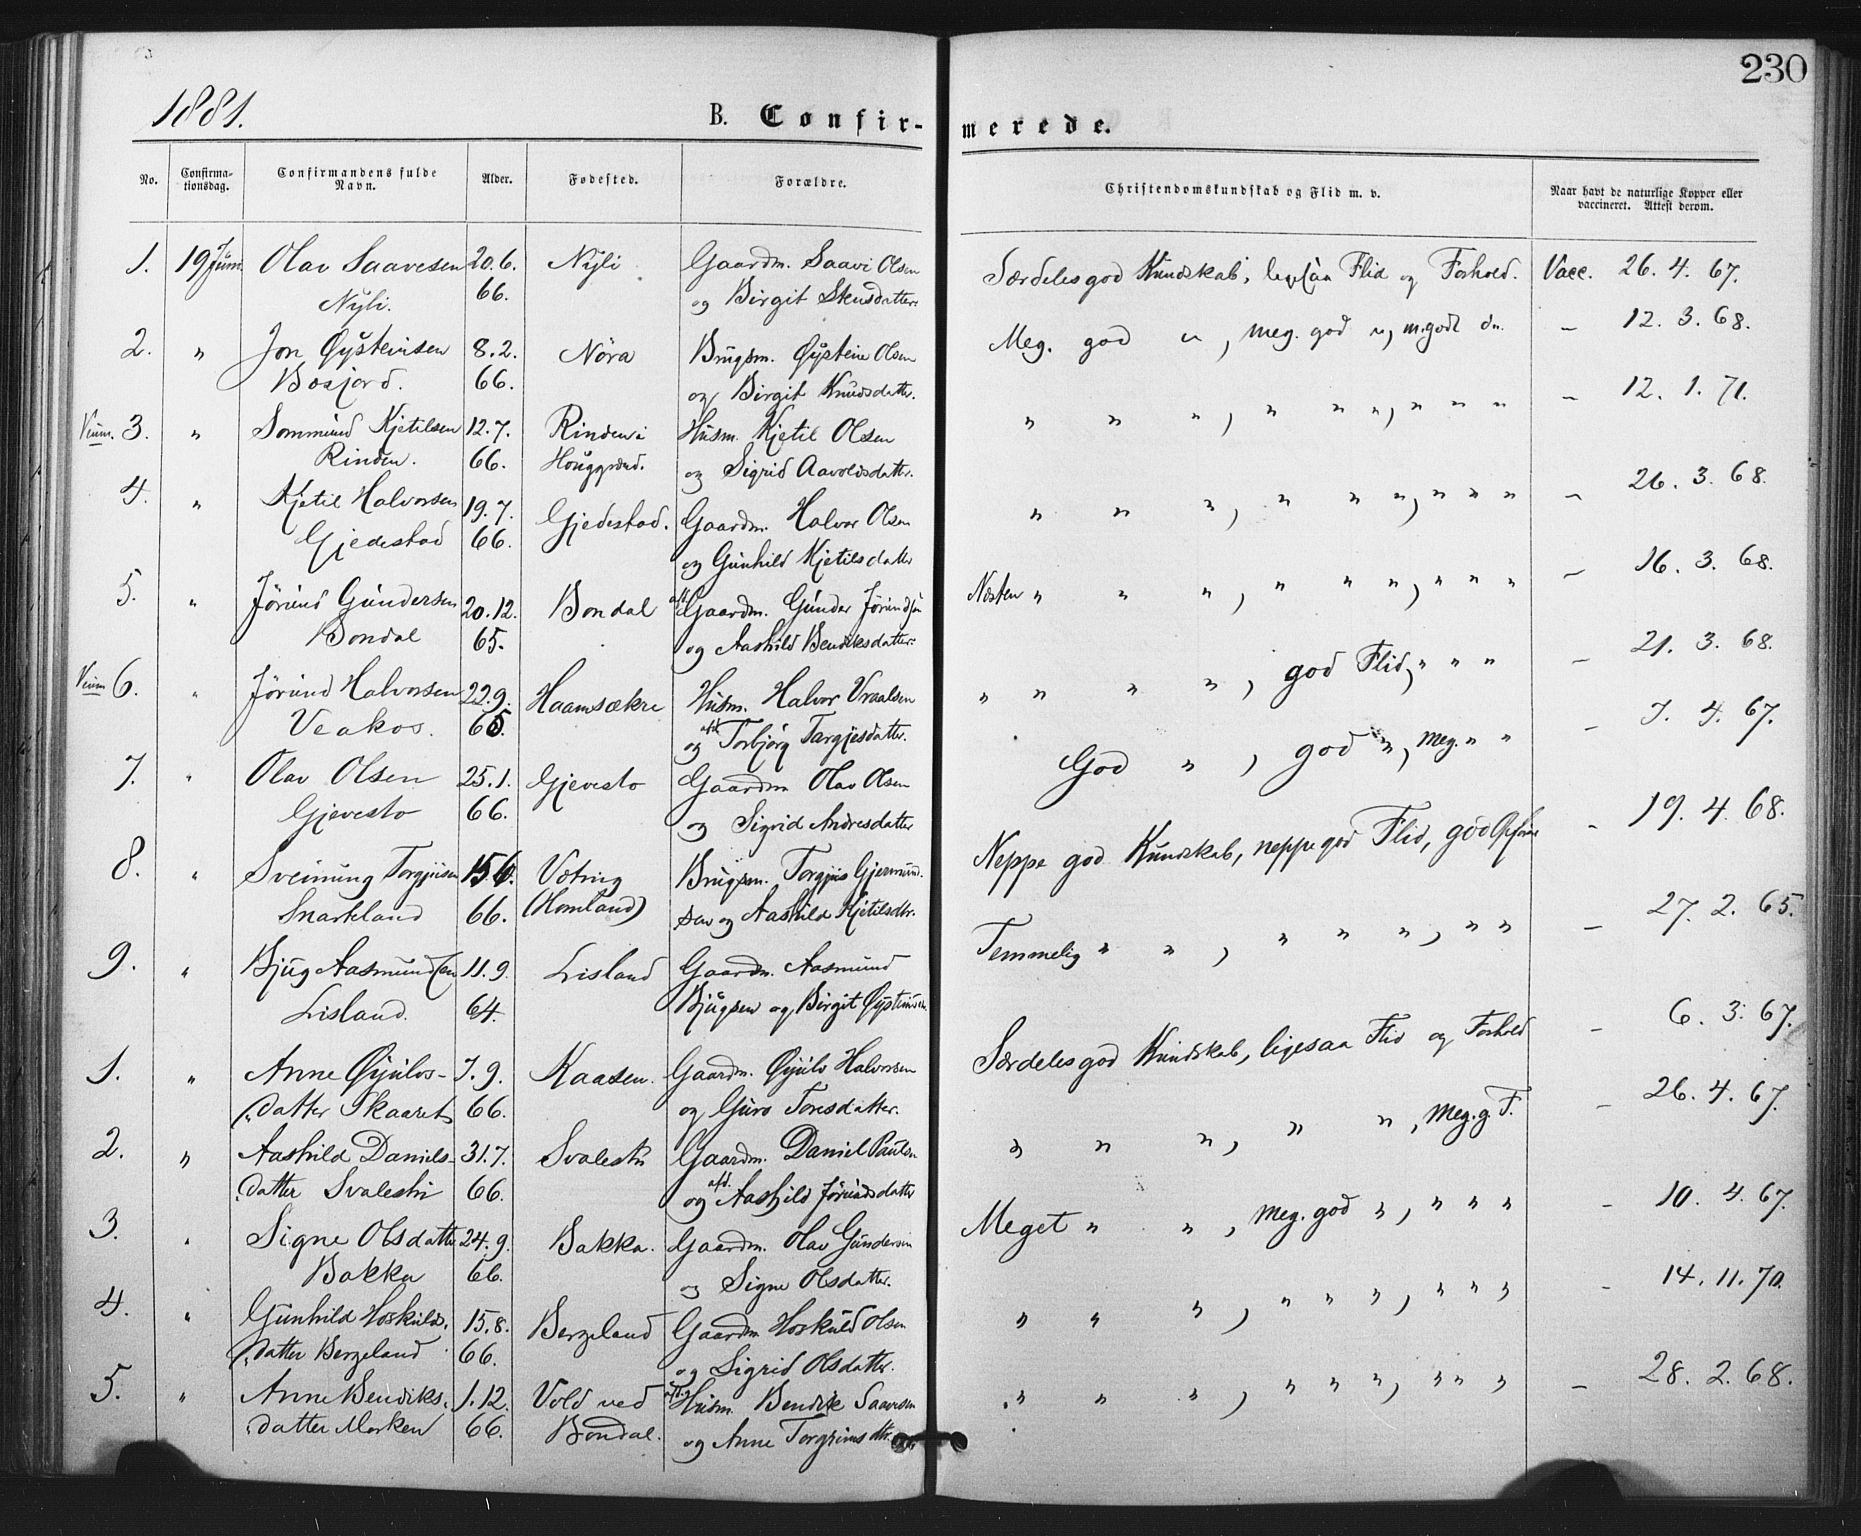 230
1881.
B. Confir-
merede.
No. Confirma- Confirmandens fulde Alder. Fødested. Forældre. Christendomskundskab og Flid m. v. Naar havt de naturlige Kopper eller
tionsdag. Navn. vaccineret. Attest derom.
1. 19 Juni Olav Saavesen 20.6. Nyli Gaardm. Saavi Olsen Særdeles god Kundskab, ligesaa Flid og Forhold. Vacc. 26. 4. 67.
Nyli. 66. og Birgit
2. " Jon Øysteinsen 8.2. Nöra Brugsm. Øystein Olsen Meg. god " , meg. god ", m. godt " – 12. 3. 68.
66. og Birgit Knudsdatter.
Veum. 3. " Sommund Kjetilsen 12.7. Rinden i Husm. Kjetil Olsen " " " , " " " , " " " – 12. 1. 71.
Rinden. 66. Houggrend. og Sigrid Aavoldsdatter.
4. " Kjetil Halvorsen 19.7. Gjedestad. Gaardm. Halvor Olsen " " " , " " " , " " " – 26. 3. 68.
Gjedestad 66. og Gunhild Kjetilsdatter
5. " Jörund Gundersen 20.12. Bondal afd. Gaardm. Gunder Jörundsen Næsten " " " , " " " , " " " – 16. 3. 68.
Bondal 65. og Aashild Bendiksdatter.
Veum 6. " Jörund Halvorsen 22.9. Haamsækre Husm. Halvor Vraalsen " " " " , god Flid, " " " – 21. 3. 68.
Veakos. 65. og afd. Torbjörg Targjesdatter.
7. " Olav Olsen 25.1. Gjevesto Gaardm Olav Olsen God " , god " , meg. " " – 7. 4. 67.
Gjevesto 66. og Sigrid Andresdatter
8. " Sveinung Torgjusen 15 6. Vötnig Brugsm. Torgjus Gjermund- Neppe god Kundskab, neppe god Flid, god Opførsel – 19. 4. 68.
Snarteland 66. (Homland) sen og Aashild Kjetilsdtr.
9. " Bjug Aasmundsen 11.9. Lisland Gaardm. Aasmund Temmelig " " , " " " , " " – 27. 2. 65.
Lisland. 64. Bjugsen og Birgit
1. " Anne Øyulvs- 7.9. Kaasen. Gaardm. Øyulv Halvorsen Særdeles god Kundskab, ligesaa Flid og Forhold – 6. 3. 67.
datter Skaaret 66. og Guro Toresdatter.
2. " Aashild Daniels- 31.7. Svalestu Gaardm. Daniel Paulsen " " " , " " , meg. g. F. – 26. 4. 67.
datter Svalestu 66. og afd. Aashild Jörundsdatter
3. " Signe Olsdatter 24.9. Bakka. Gaardm. Olav Gundersen Meget " " , meg. god " , " " " – 10. 4. 67.
Bakka 66. og Signe Olsdatter.
4. " Gunhild Hoskulds- 15.8. Bergeland Gaardm Hoskuld Olsen " " " , " " " , " " " – 14. 11. 70.
datter Bergeland 66. og Sigrid Olsdatter.
5. " Anne Bendiks- 1.12. Vold ved Husm. Bendik Saavesen " " " , " " " , " " " – 28. 2. 68.
datter Morken 66. Bondal. og Anne Torgrimsdtr.